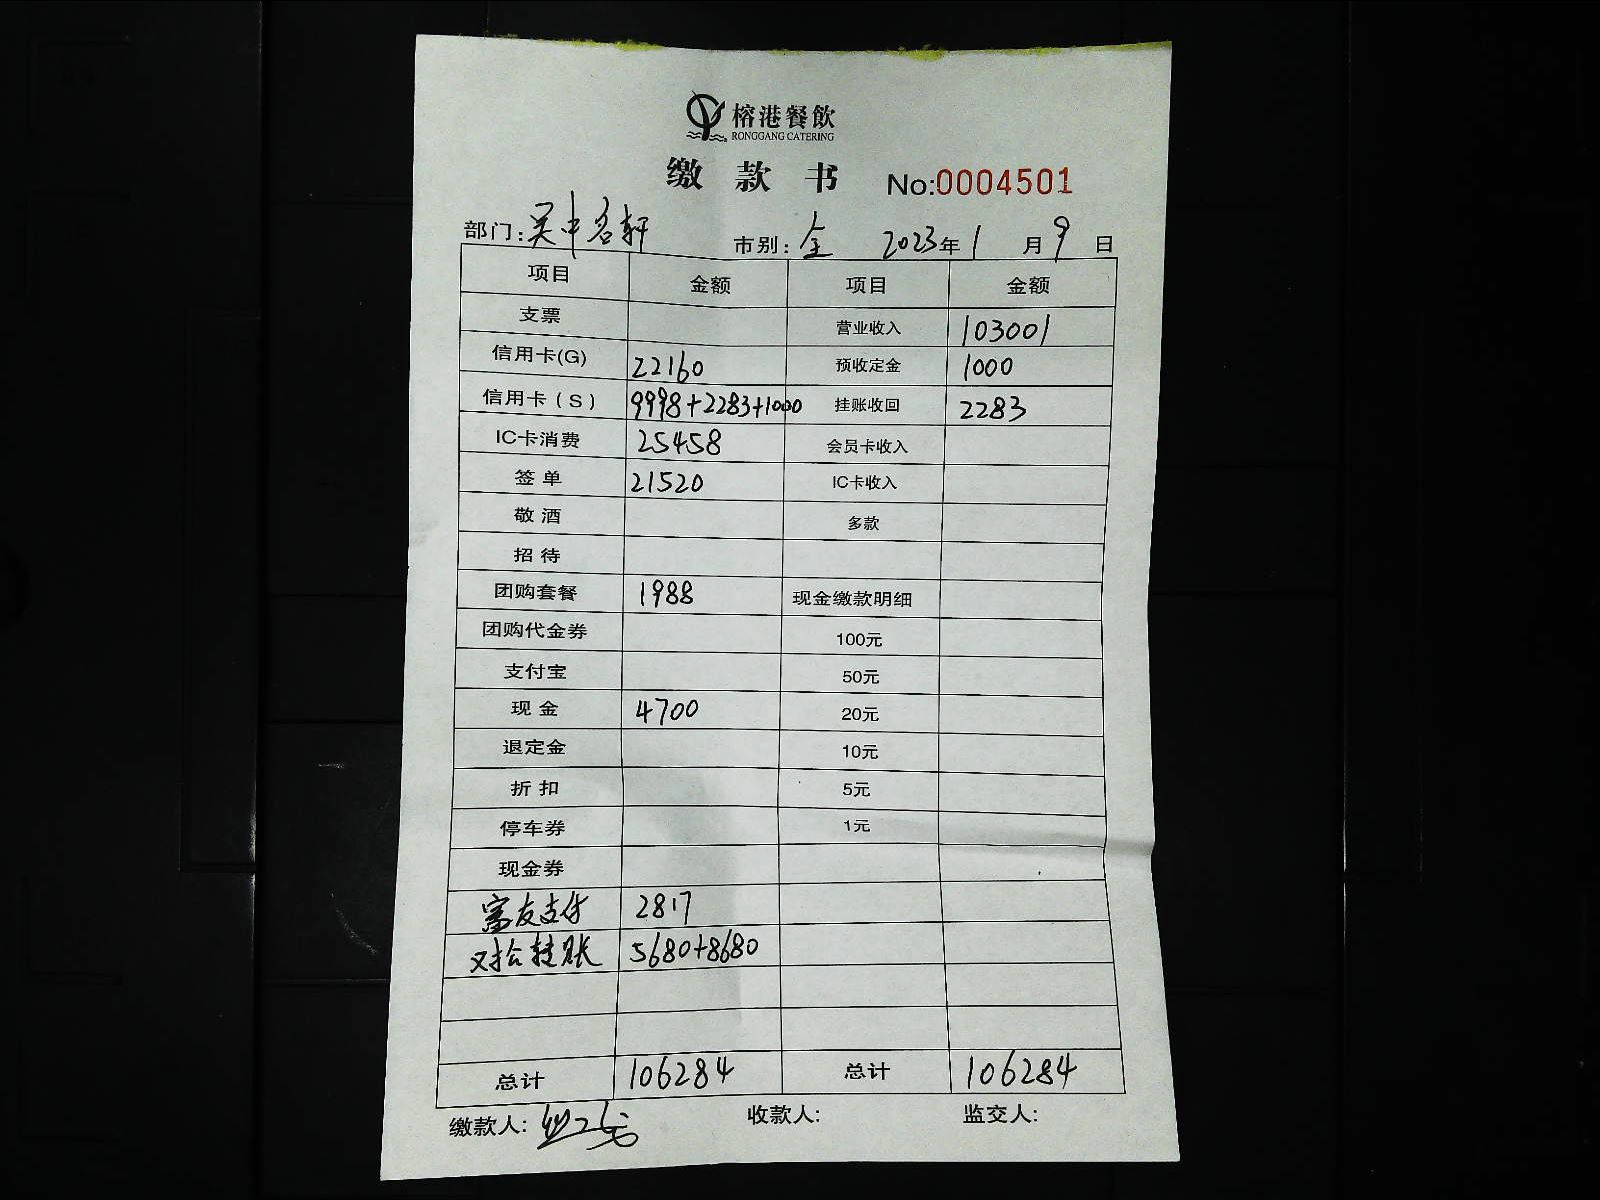 榕港餐飲
RONGGANG CATERING
缴款书 No:0004501
部门:吴中名轩 市别:全 2023年1月9日
项目 金额 项目 金额
支票 营业收入 103001
信用卡(G) 22160 预收定金 1000
信用卡(S) 9998+2283+1000 挂账收回 2283
IC卡消费 25458 会员卡收入
签单 21520 IC卡收入
敬酒 多款
招待
团购套餐 1988 现金缴款明细
团购代金券 100元
支付宝 50元
现金 4700 20元
退定金 10元
折扣 5元
停车券 1元
现金券
富友支付 2817
对公转账 5680+8680
总计 106284 总计 106284
缴款人: 收款人: 监交人: